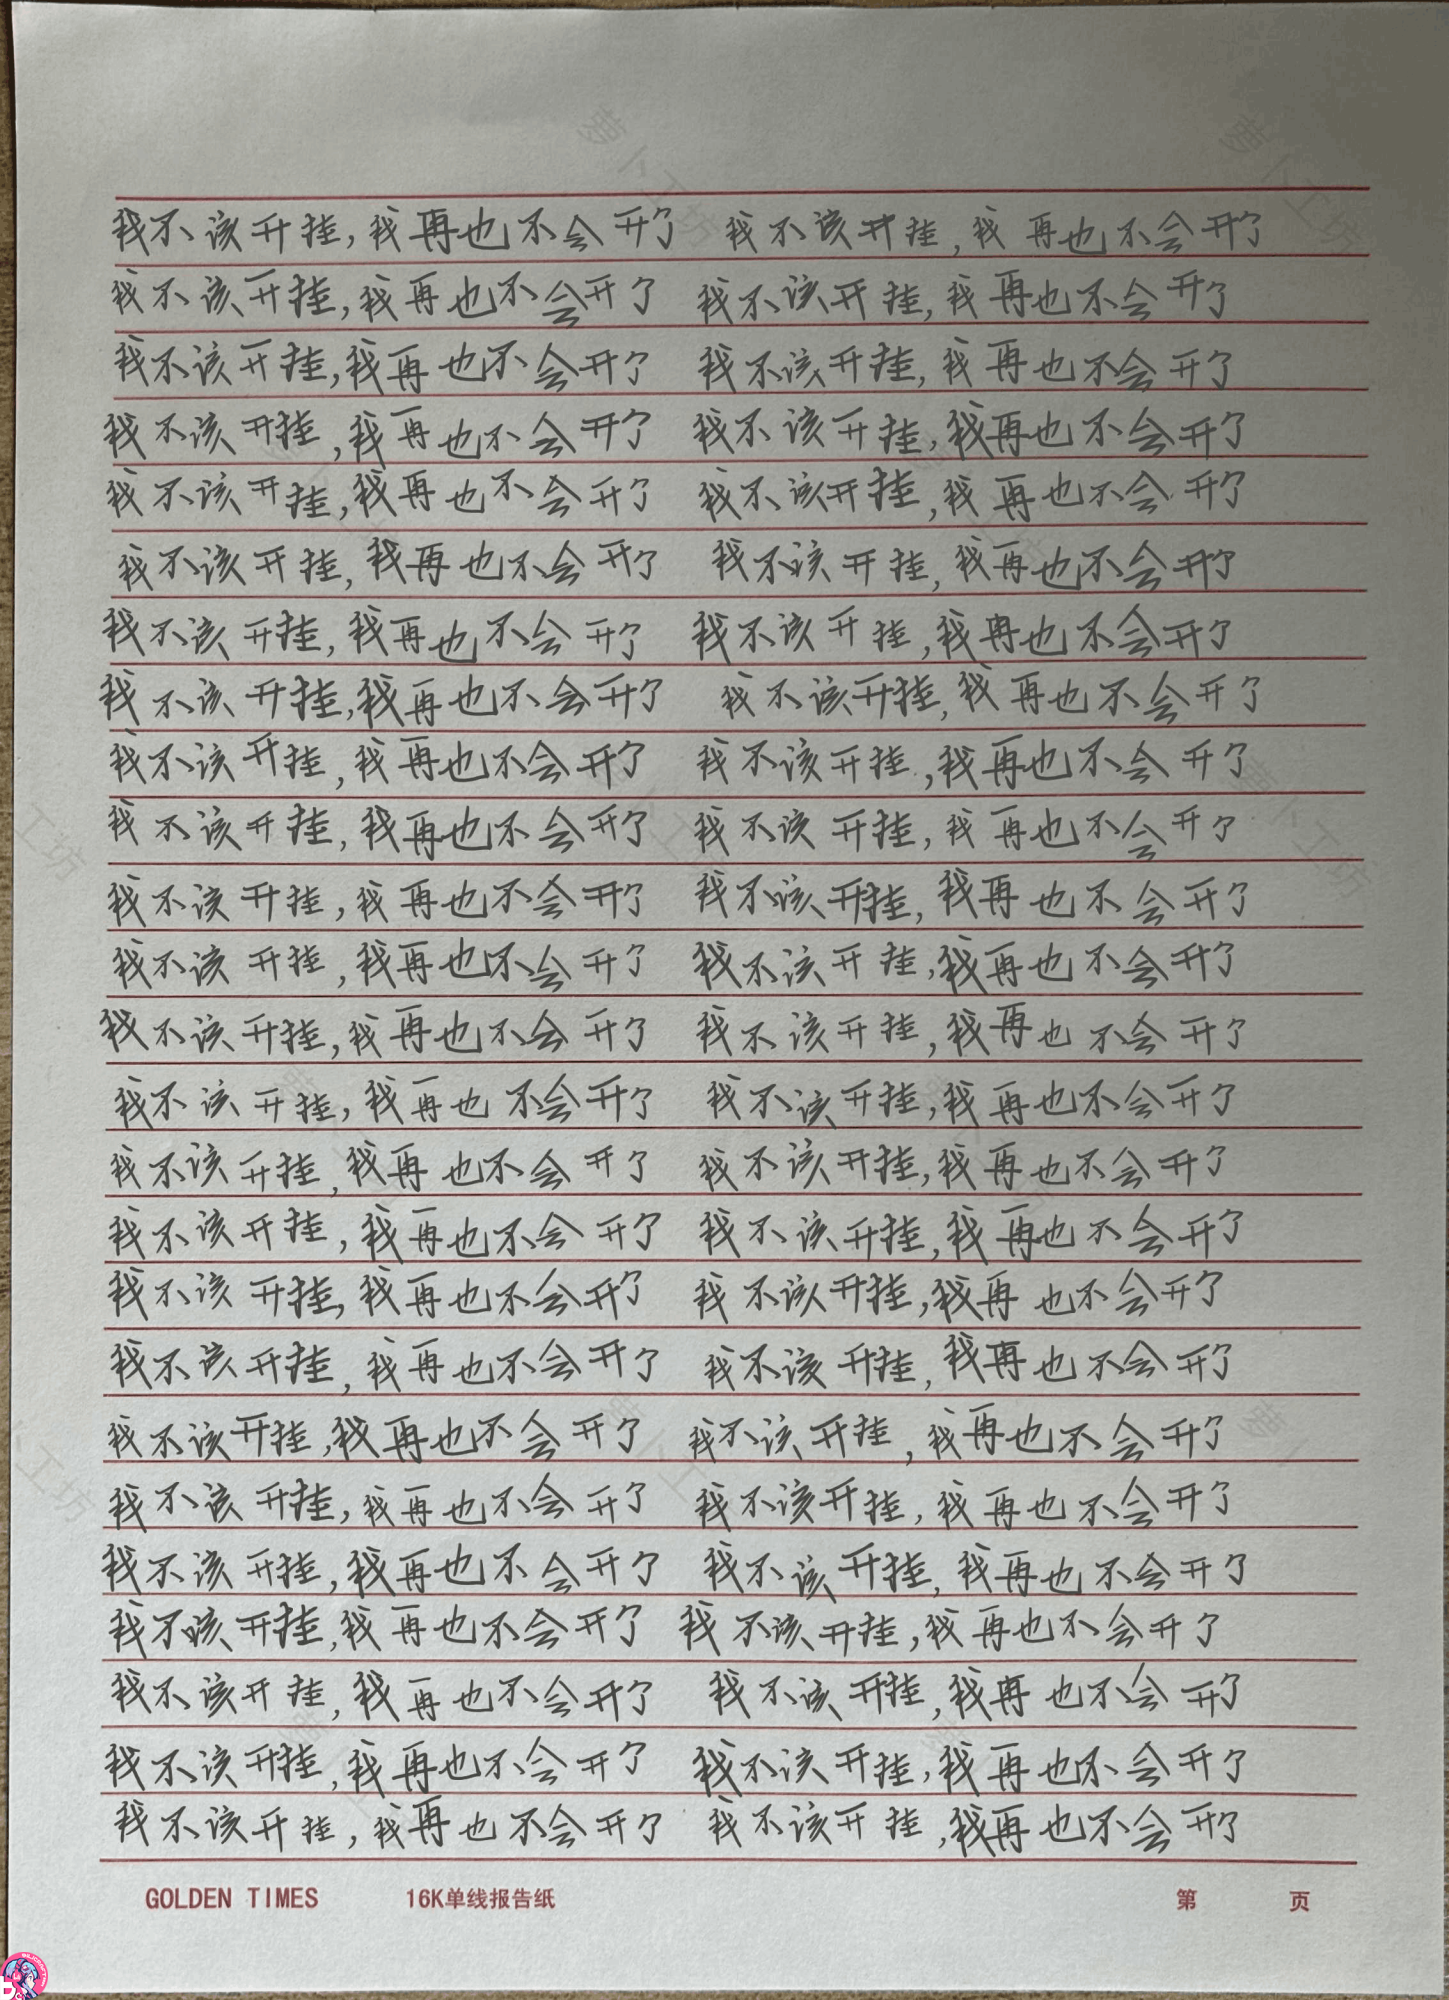 我不该开挂,我再也不会开了 我不该开挂,我再也不会开了
我不该开挂,我再也不会开了 我不该开挂,我再也不会开了
我不该开挂,我再也不会开了 我不该开挂,我再也不会开了
我不该开挂,我再也不会开了 我不该开挂,我再也不会开了
我不该开挂,我再也不会开了 我不该开挂,我再也不会开了
我不该开挂,我再也不会开了 我不该开挂,我再也不会开了
我不该开挂,我再也不会开了 我不该开挂,我再也不会开了
我不该开挂,我再也不会开了 我不该开挂,我再也不会开了
我不该开挂,我再也不会开了 我不该开挂,我再也不会开了
我不该开挂,我再也不会开了 我不该开挂,我再也不会开了
我不该开挂,我再也不会开了 我不该开挂,我再也不会开了
我不该开挂,我再也不会开了 我不该开挂,我再也不会开了
我不该开挂,我再也不会开了 我不该开挂,我再也不会开了
我不该开挂,我再也不会开了 我不该开挂,我再也不会开了
我不该开挂,我再也不会开了 我不该开挂,我再也不会开了
我不该开挂,我再也不会开了 我不该开挂,我再也不会开了
我不该开挂,我再也不会开了 我不该开挂,我再也不会开了
我不该开挂,我再也不会开了 我不该开挂,我再也不会开了
我不该开挂,我再也不会开了 我不该开挂,我再也不会开了
我不该开挂,我再也不会开了 我不该开挂,我再也不会开了
我不该开挂,我再也不会开了 我不该开挂,我再也不会开了
我不该开挂,我再也不会开了 我不该开挂,我再也不会开了
我不该开挂,我再也不会开了 我不该开挂,我再也不会开了
我不该开挂,我再也不会开了 我不该开挂,我再也不会开了
我不该开挂,我再也不会开了 我不该开挂,我再也不会开了
GOLDEN TIMES 16K单线报告纸 第 页
萝卜工坊